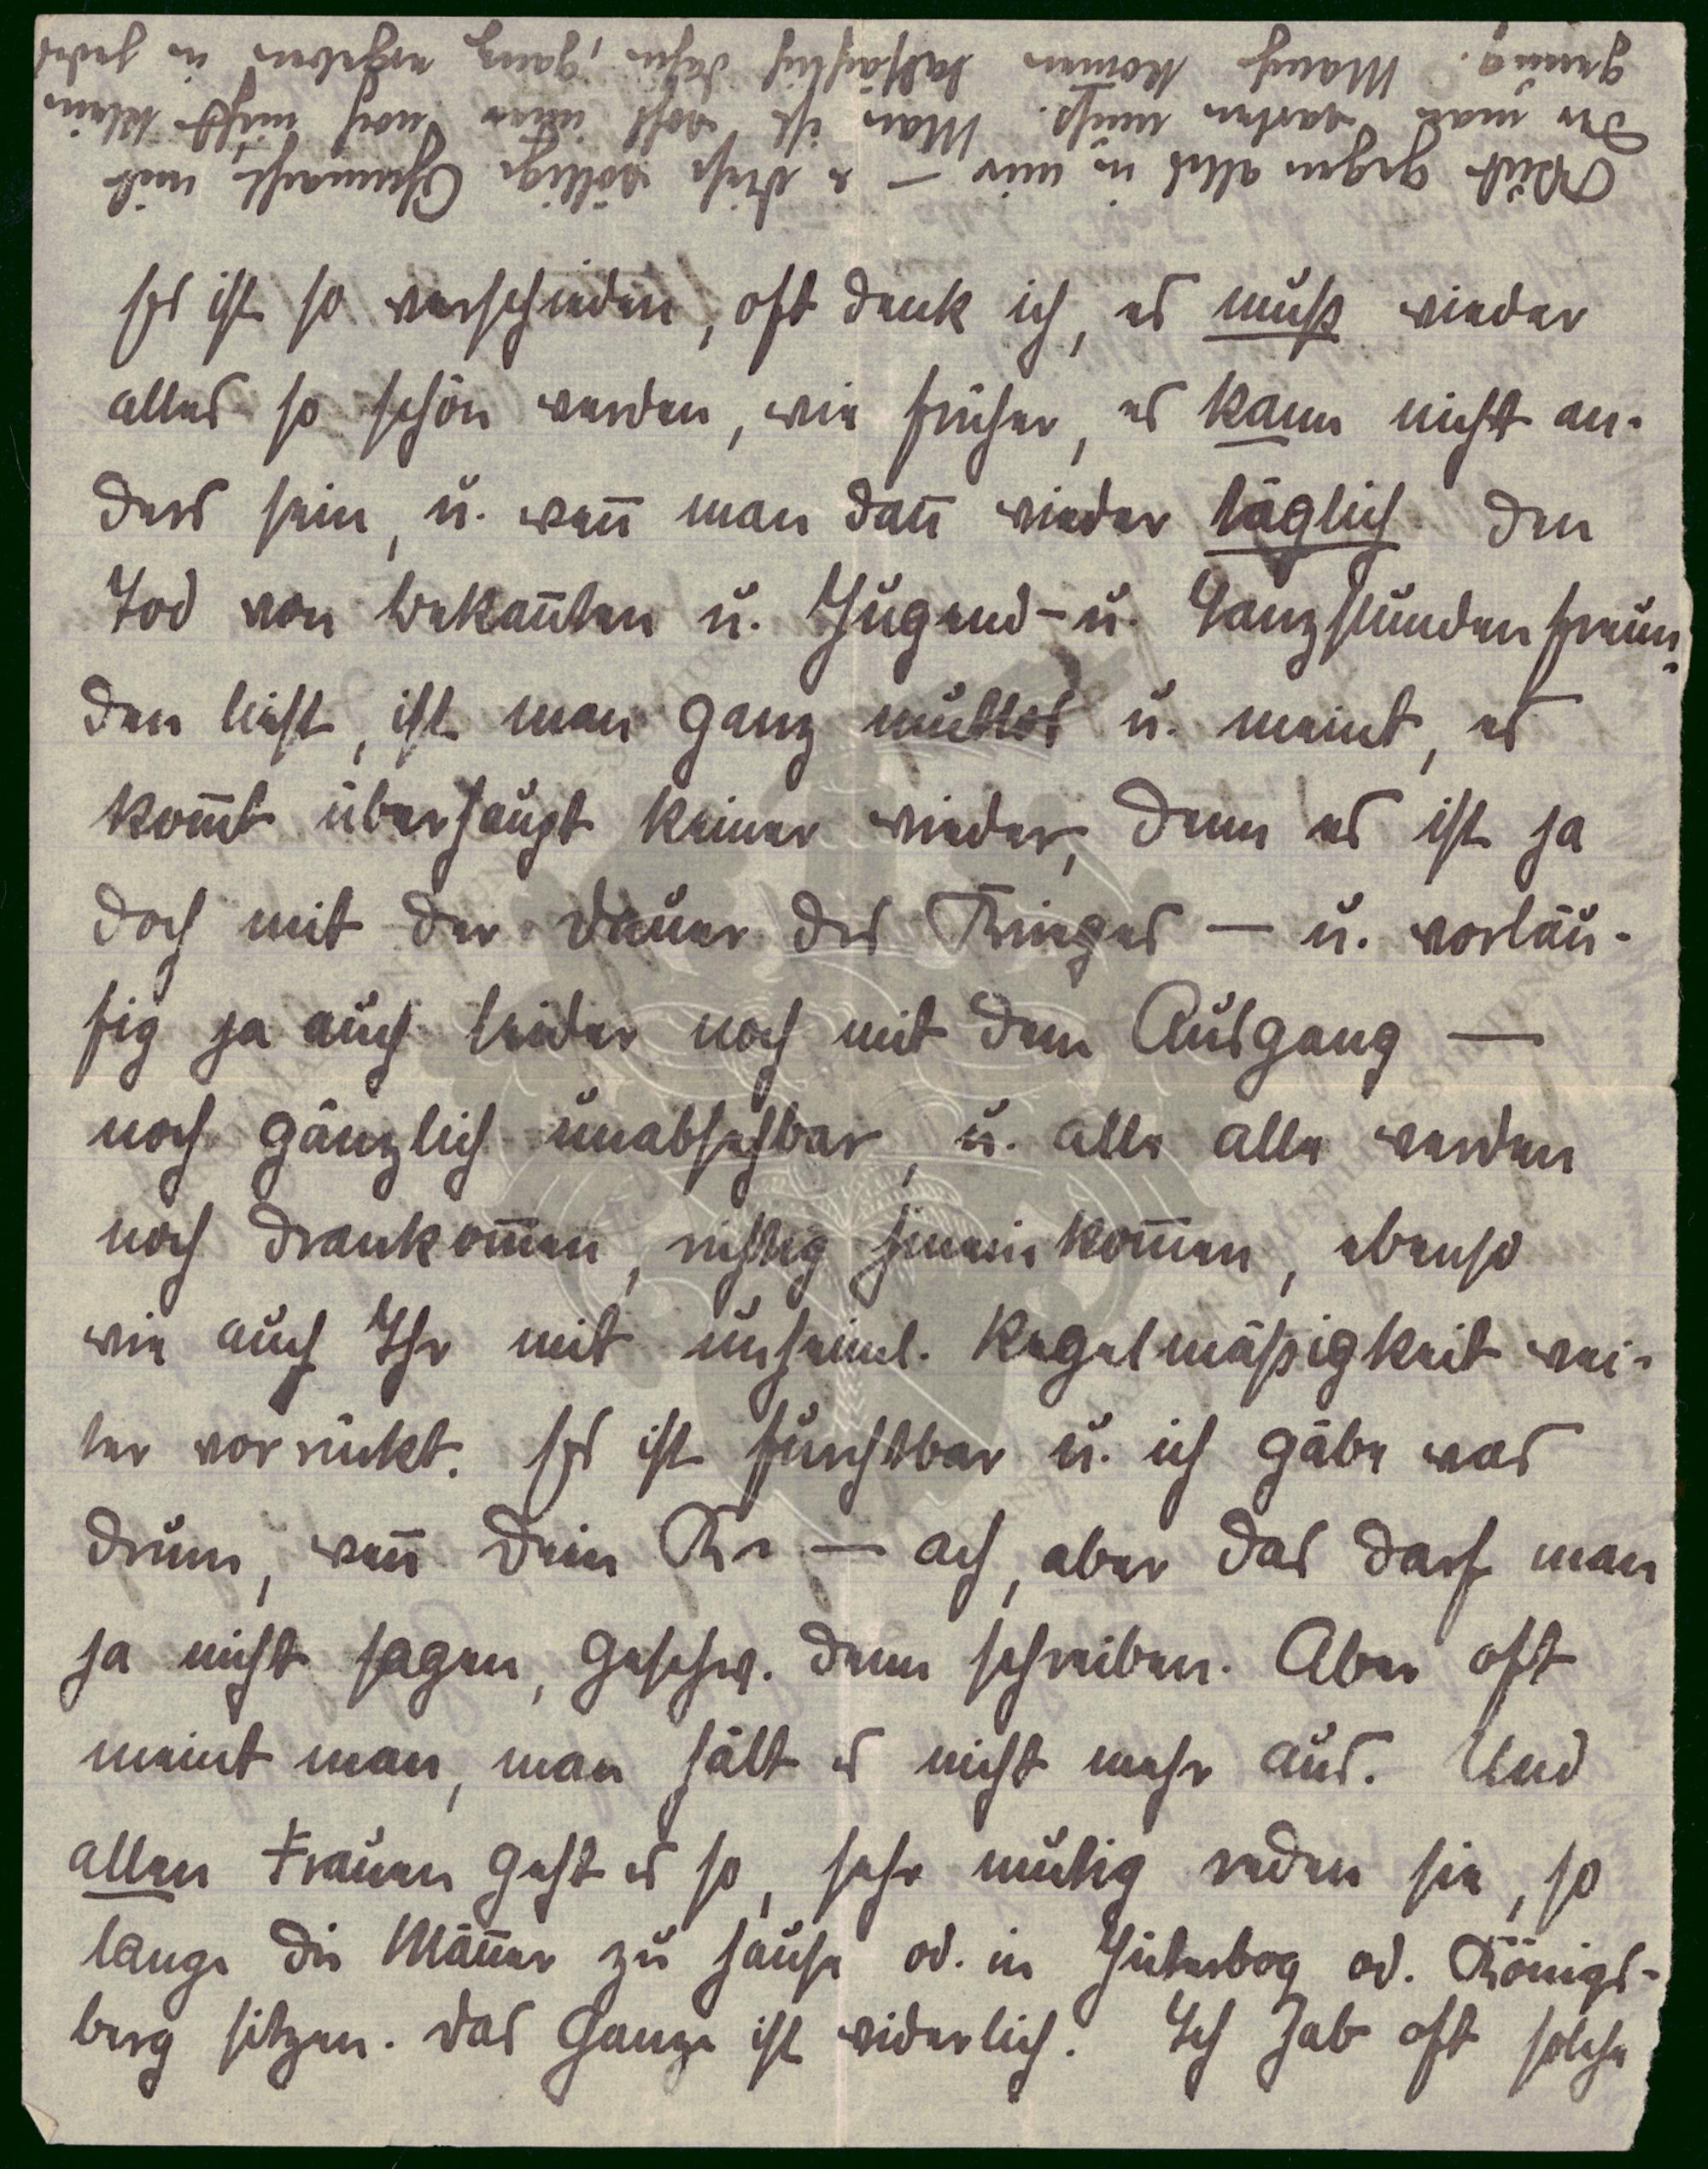 Es ist so verschieden, oft denk ich, es muß wieder
alles so schön werden, wie früher, es kann nicht an-
ders sein, u. wen̄ man dan̄ wieder täglich den
Tod von Bekan̄ten u. Jugend- u. Tanzstundenfreun-
den liest, ist man ganz mutlos u. meint, es
kom̄t überhaupt keiner wieder, denn es ist ja
doch mit der Dauer des Krieges — u. vorläu-
fig ja auch leider noch mit dem Ausgang —
noch gänzlich unabsehbar, u. alle alle werden
noch drankom̄en, richtig hineinkom̄en, ebenso
wie auch Ihr mit unheiml. Regelmäßigkeit wei-
ter vorrückt. Es ist furchtbar u. ich gäbe was
drum, wen̄ Dein — ach, aber das darf man
ja nicht sagen, geschw. denn schreiben. Aber oft
meint man, man hält es nicht mehr aus. Und
allen Frauen geht es so, sehr mutig reden sie, so
lange die Män̄er zu Hause od. in Jüterbog od. Königs-
berg sitzen. Das Ganze ist widerlich. Ich hab oft solche
Wut gegen alles in mir — u. diese völlige Ohnmacht, mit
der man warten muß. Man ist wohl immer noch nicht klein
genug. Manche kom̄en tatsächlich dahin, ganz ergeben in jedes